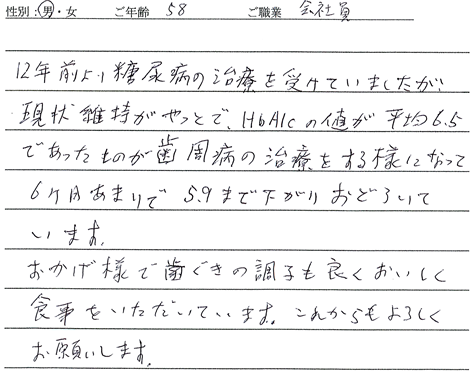 性別：男・女　ご年齢 58　ご職業 会社員
12年前より糖尿病の治療を受けていましたが、
現状維持がやっとで、HbA1cの値が平均6.5
であったものが歯周病の治療をする様になって
6ヶ月あまりで 5.9まで下がり おどろいて
います。
おかげ様で歯ぐきの調子も良くおいしく
食事をいただいています。これからもよろしく
お願いします。